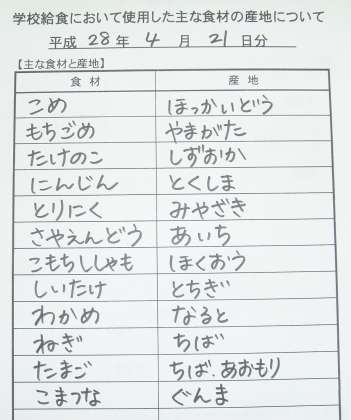 学校給食において使用した主な食材の産地について
平成 28 年 4 月 21 日分
【主な食材と産地】
食 材 産 地
こめ ほっかいどう
もちごめ やまがた
たけのこ しずおか
にんじん とくしま
とりにく みやざき
さやえんどう あいち
こもちししゃも ほくおう
しいたけ とちぎ
わかめ なると
ねぎ ちば
たまご ちば.あおもり
こまつな ぐんま